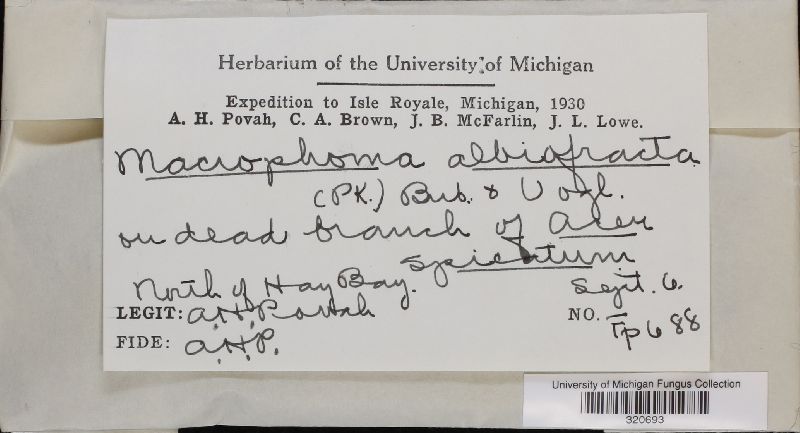 Herbarium of the University of Michigan
Expedition to Isle Royale, Michigan, 1930
A. H. Povah, C. A. Brown, J. B. McFarlin, J. L. Lowe.
Macrophoma albiofracta
(Pk.) Bub. & Vogl.
on dead branch of Acer
spicatum
North of Hay Bay. Sept. 6.
LEGIT: A.H. Povah
NO. Fp688
FIDE: A.H.P.
University of Michigan Fungus Collection
320693